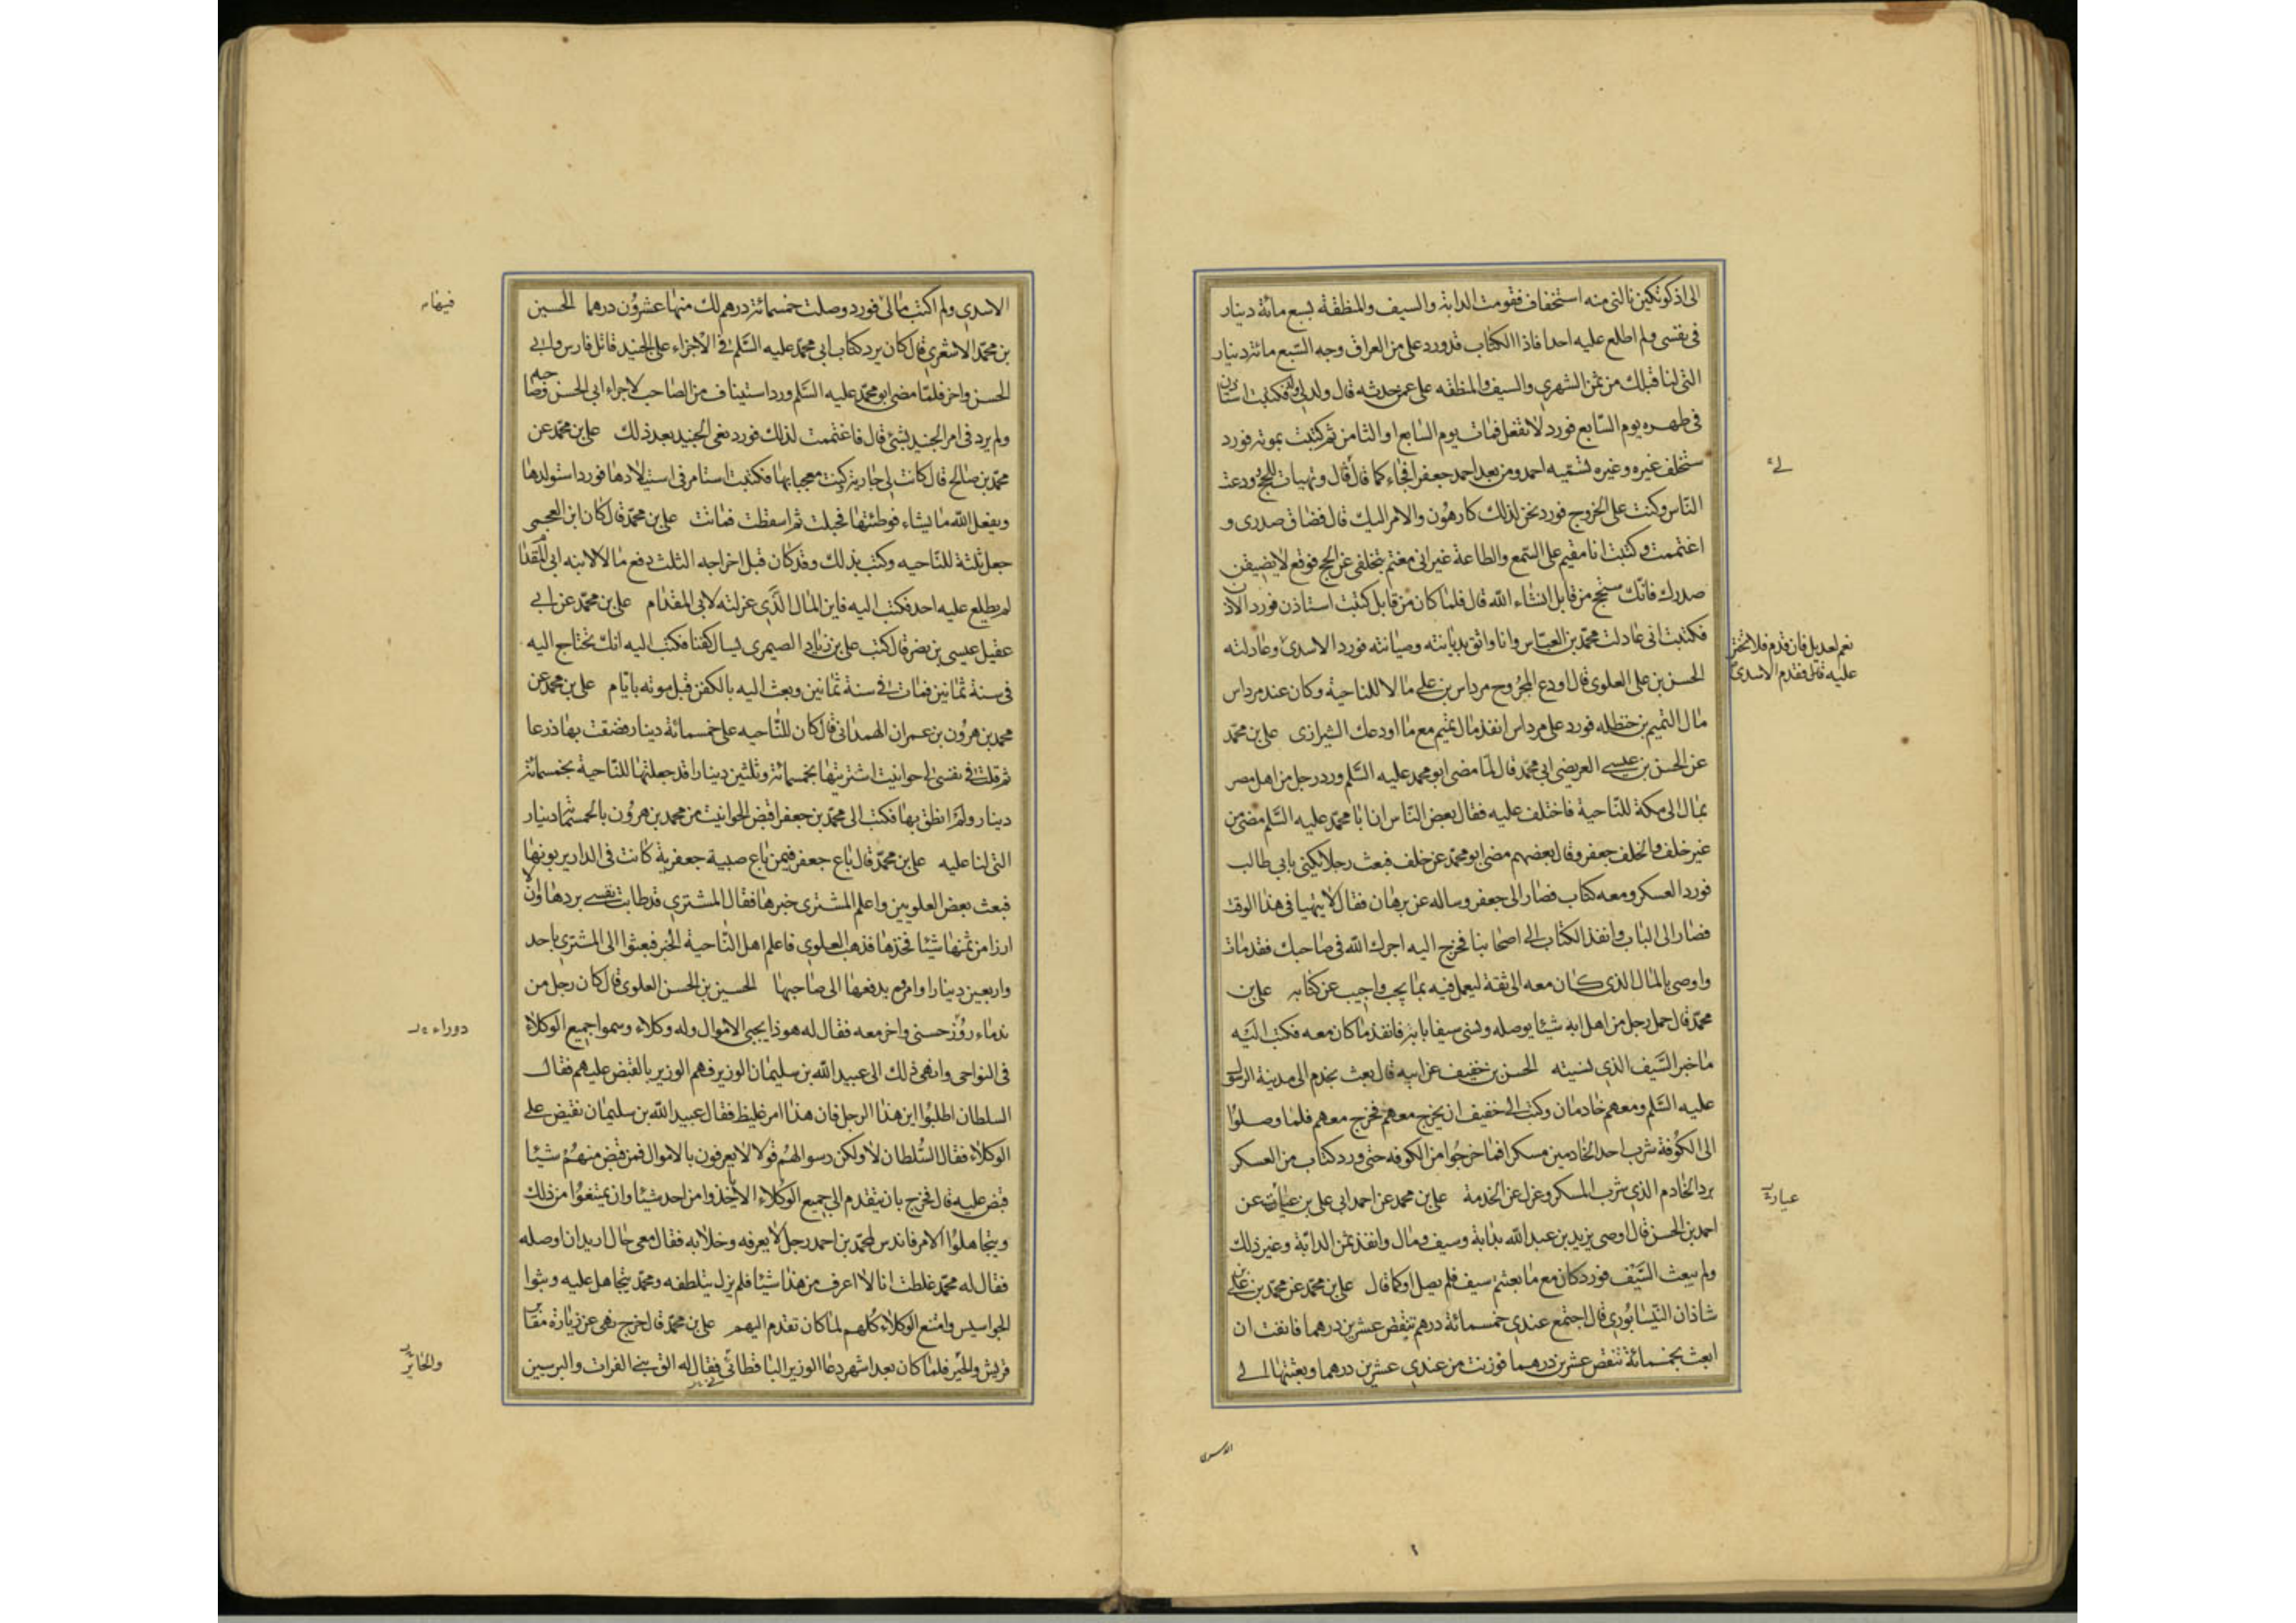 الى اذكوتكين نالنى منه استخفاف فقومت الدابة والسيف والمنطقة بسبع مائة دينار
فى نفسى ولم اطلع عليه احدا فاذا الكتاب قدورد على من العراق وجه السبع مائة دينار
التى لنا قبلك من ثمن الشهرى والسيف والمنطقه على عمن حدثه قال ولد لى ولد فكتبت استاذن
فى طهره يوم السابع فورد لا تفعل فمات يوم السابع او الثامن ثم كتبت بموته فورد
ستخلف غيره وغيره تسميه احمد ومن بعد احمد جعفرا فجاء كما قال قال وتهيات للحج وودعت
الناس وكنت على الخروج فورد نحن لذلك كارهون والامر اليك قال فضاق صدرى و
اغتممت وكتبت انا مقيم على السمع والطاعة غير انى مغتم بتخلفى عن الحج فوقع لا يضيقن
صدرك فانك ستحج من قابل انشاء الله قال فلما كان من قابل كتبت استاذن فورد الاذن
فكتبت انى عادلت محمد بن العباس وانا واثق بديانته وصيانته فورد الاسدى وعادلته
الحسن بن على العلوى قال اودع المجروح مرداس بن على مالا للناحية وكان عند مرداس
مال التميم بن حنظله فورد على مرداس انفذ مال تميم مع ما اودعك الشيرازى على بن محمد
عن الحسن بن عيسى العريضى ابى محمد قال لما مضى ابو محمد عليه السلم ورد رجل من اهل مصر
بمال الى مكة للناحية فاختلف عليه فقال بعض الناس ان ابا محمد عليه السلم مضى من
غير خلف والخلف جعفر وقال بعضهم مضى ابو محمد عن خلف فبعث رجلا يكنى بابى طالب
فورد العسكر ومعه كتاب فصار الى جعفر وساله عن برهان فقال لا يتهيا فى هذا الوقت
فصار الى الباب وانفذ الكتاب الى اصحابنا فخرج اليه اجرك الله فى صاحبك فقد مات
واوصى بالمال الذى كان معه الى ثقة ليعمل فيه بما يجب واجيب عن كتابه على بن
محمد قال حمل رجل من اهل ابة شيئا يوصله ونسى سيفا بابة فانفذ ما كان معه فكتب اليه
ما خبر السيف الذى نسيته الحسن بن خفيف عن ابيه قال بعث بخدم الى مدينة الرسول
عليه السلم ومعهم خادمان وكتب الى خفيف ان يخرج معهم فخرج معهم فلما وصلوا
الى الكوفة شرب احد الخادمين مسكرا فما خرجوا من الكوفه حتى ورد كتاب من العسكر
برد الخادم الذى شرب المسكر وعزل عن الخدمة على بن محمد عن احمد ابى على بن غياث عن
احمد بن الحسن قال اوصى يزيد بن عبد الله بدابة وسيف ومال وانفذ ثمن الدابة وغير ذلك
ولم يبعث السيف فورد كان مع ما بعثتم سيف فلم يصل او كما قال على بن محمد عن محمد بن على بن
شاذان النيسابورى قال اجتمع عندى خمسمائة درهم تنقص عشرين درهما فانفت ان
ابعث بخمسمائة تنقص عشرين درهما فوزنت من عندى عشرين درهما وبعثتها الى
لى
نعم العديل فان قدم فلا تختر
عليه قال فقدم الاسدى
الاسدى
الاسدى ولم اكتب مالى فورد وصلت خمسمائة درهم لك منها عشرون درهما الحسين
بن محمد الاشعرى قال كان يرد كتاب ابى محمد عليه السلم فى الاجراء على الجنيد قاتل فارس وابى
الحسن واخر فلما مضى ابو محمد عليه السلم ورد استيناف من الصاحب لاجراء ابى الحسن وصاحبه
ولم يرد فى امر الجنيد بشئ قال فاغتممت لذلك فورد نعى الجنيد بعد ذلك على بن محمد عن
محمد بن صالح قال كانت لى جارية كنت معجبا بها فكتبت استامر فى استيلادها فورد استولدها
ويفعل الله ما يشاء فوطئتها فحبلت ثم اسقطت فماتت على بن محمد قال كان ابن العجمى
جعل ثلثه للناحيه وكتب بذلك وقد كان قبل اخراجه الثلث دفع مالا لابنه ابى المقدام
لم يطلع عليه احد فكتب اليه فاين المال الذى عزلته لابى المقدام على بن محمد عن ابى
عقيل عيسى بن نصر قال كتب على بن زياد الصيمرى يسال كفنا فكتب اليه انك تحتاج اليه
فى سنة ثمانين فمات فى سنة ثمانين وبعث اليه بالكفن قبل موته بايام على بن محمد عن
محمد بن هرون بن عمران الهمدانى قال كان للناحيه على خمسمائة دينار فضقت بها ذرعا
ثم قلت فى نفسى لى حوانيت اشتريتها بخمسمائة وثلثين دينارا قد جعلتها للناحية بخمسمائة
دينار ولم انطق بها فكتب الى محمد بن جعفر اقبض الحوانيت من محمد بن هرون بالخمسمائة دينار
التى لنا عليه على بن محمد قال باع جعفر فيمن باع صبية جعفرية كانت فى الدار يربونها
فبعث بعض العلويين واعلم المشترى خبرها فقال المشترى قد طابت نفسى بردها وان لا
ارزا من ثمنها شيئا فخذها فذهب العلوى فاعلم اهل الناحية الخبر فبعثوا الى المشترى باحد
واربعين دينارا وامروه بدفعها الى صاحبها الحسين بن الحسن العلوى قال كان رجل من
ندماء روز حسنى واخر معه فقال له هو ذا يجبى الاموال وله وكلاء وسموا جميع الوكلاء
فى النواحى وانهى ذلك الى عبيد الله بن سليمان الوزير فهم الوزير بالقبض عليهم فقال
السلطان اطلبوا اين هذا الرجل فان هذا امر غليظ فقال عبيد الله بن سليمان نقبض على
الوكلاء فقال السلطان لا ولكن دسوا لهم قوما لا يعرفون بالاموال فمن قبض منهم شيئا
قبض عليه قال فخرج بان يتقدم الى جميع الوكلاء الا ياخذوا من احد شيئا وان يمتنعوا من ذلك
ويتجاهلوا الامر فاندس لمحمد بن احمد رجل لا يعرفه وخلا به فقال معى مال اريد ان اوصله
فقال له محمد غلطت انا لا اعرف من هذا شيئا فلم يزل يتلطفه ومحمد يتجاهل عليه وبثوا
الجواسيس وامتنع الوكلاء كلهم لما كان تقدم اليهم على بن محمد قال خرج نهى عن زيارة مقابر
قريش والحير فلما كان بعد اشهر دعا الوزير الباقطائى فقال له الق بنى الفرات والبرسيين